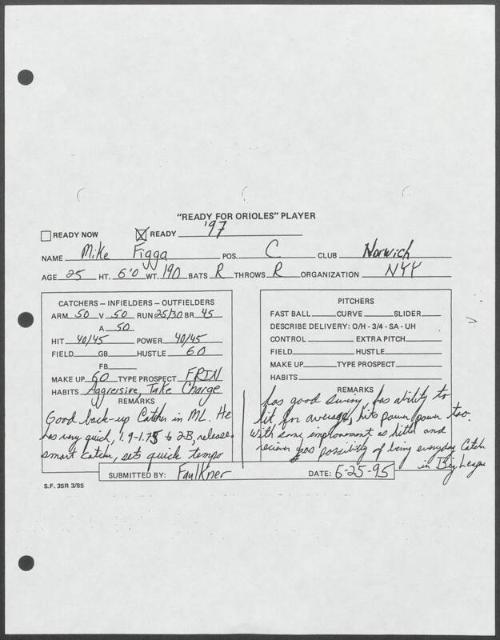 "READY FOR ORIOLES" PLAYER
READY NOW READY '97
NAME Mike Figga POS. C CLUB Norwich
AGE 25 HT. 6'0 WT. 190 BATS R THROWS R ORGANIZATION NYY
CATCHERS – INFIELDERS – OUTFIELDERS
ARM 50 V 50 RUN 25/30 BR 45
A 50
HIT 40/45 POWER 40/45
FIELD GB HUSTLE 60
FB
MAKE UP 60 TYPE PROSPECT FRIN
HABITS Aggressive, Take Charge
REMARKS
Good back-up Catcher in ML. He
has very quick, 1.9-1.95 to 2-B, release.
smart catcher, sets quick tempo
PITCHERS
FAST BALL CURVE SLIDER
DESCRIBE DELIVERY: O/H - 3/4 - SA - UH
CONTROL EXTRA PITCH
FIELD HUSTLE
MAKE UP TYPE PROSPECT
HABITS
REMARKS
has good swing, has ability to
hit for average, hits power too.
With some improvement as hitter and
receiver has possibility of being everyday Catcher
in Big League
SUBMITTED BY: Faulkner DATE: 6-25-95
S.F. 3SR 3/85